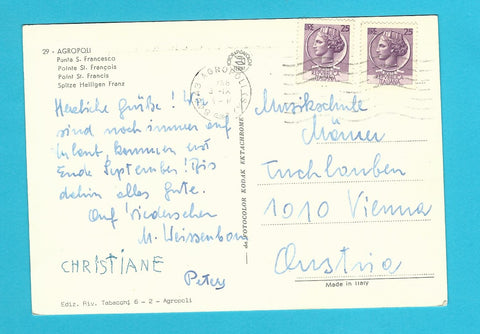 29 - AGROPOLI
Punta S. Francesco
Pointe St. François
Point St. Francis
Spitze Heiligen Franz
Herzliche Grüße! Wir
sind noch immer auf
Urlaub, kommen erst
Ende September! Bis
dahin alles Gute.
Auf Wiedersehen
M. Weissenborn
CHRISTIANE
Peter
Ediz. Riv. Tabacchi 6 - 2 - Agropoli
da FOTOCOLOR KODAK EKTACHROME
LIRE 25
LIRE 25
AGROPOLI
Musikschule
Tuchlauben
1010 Vienna
Austria
Made in Italy